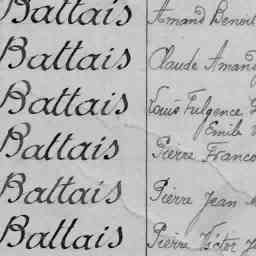 Battais Amand Benoit
Battais Claude Amand
Battais Louis Fulgence
Emile
Battais Pierre Franço
Battais Pierre Jean
Battais Pierre Victor